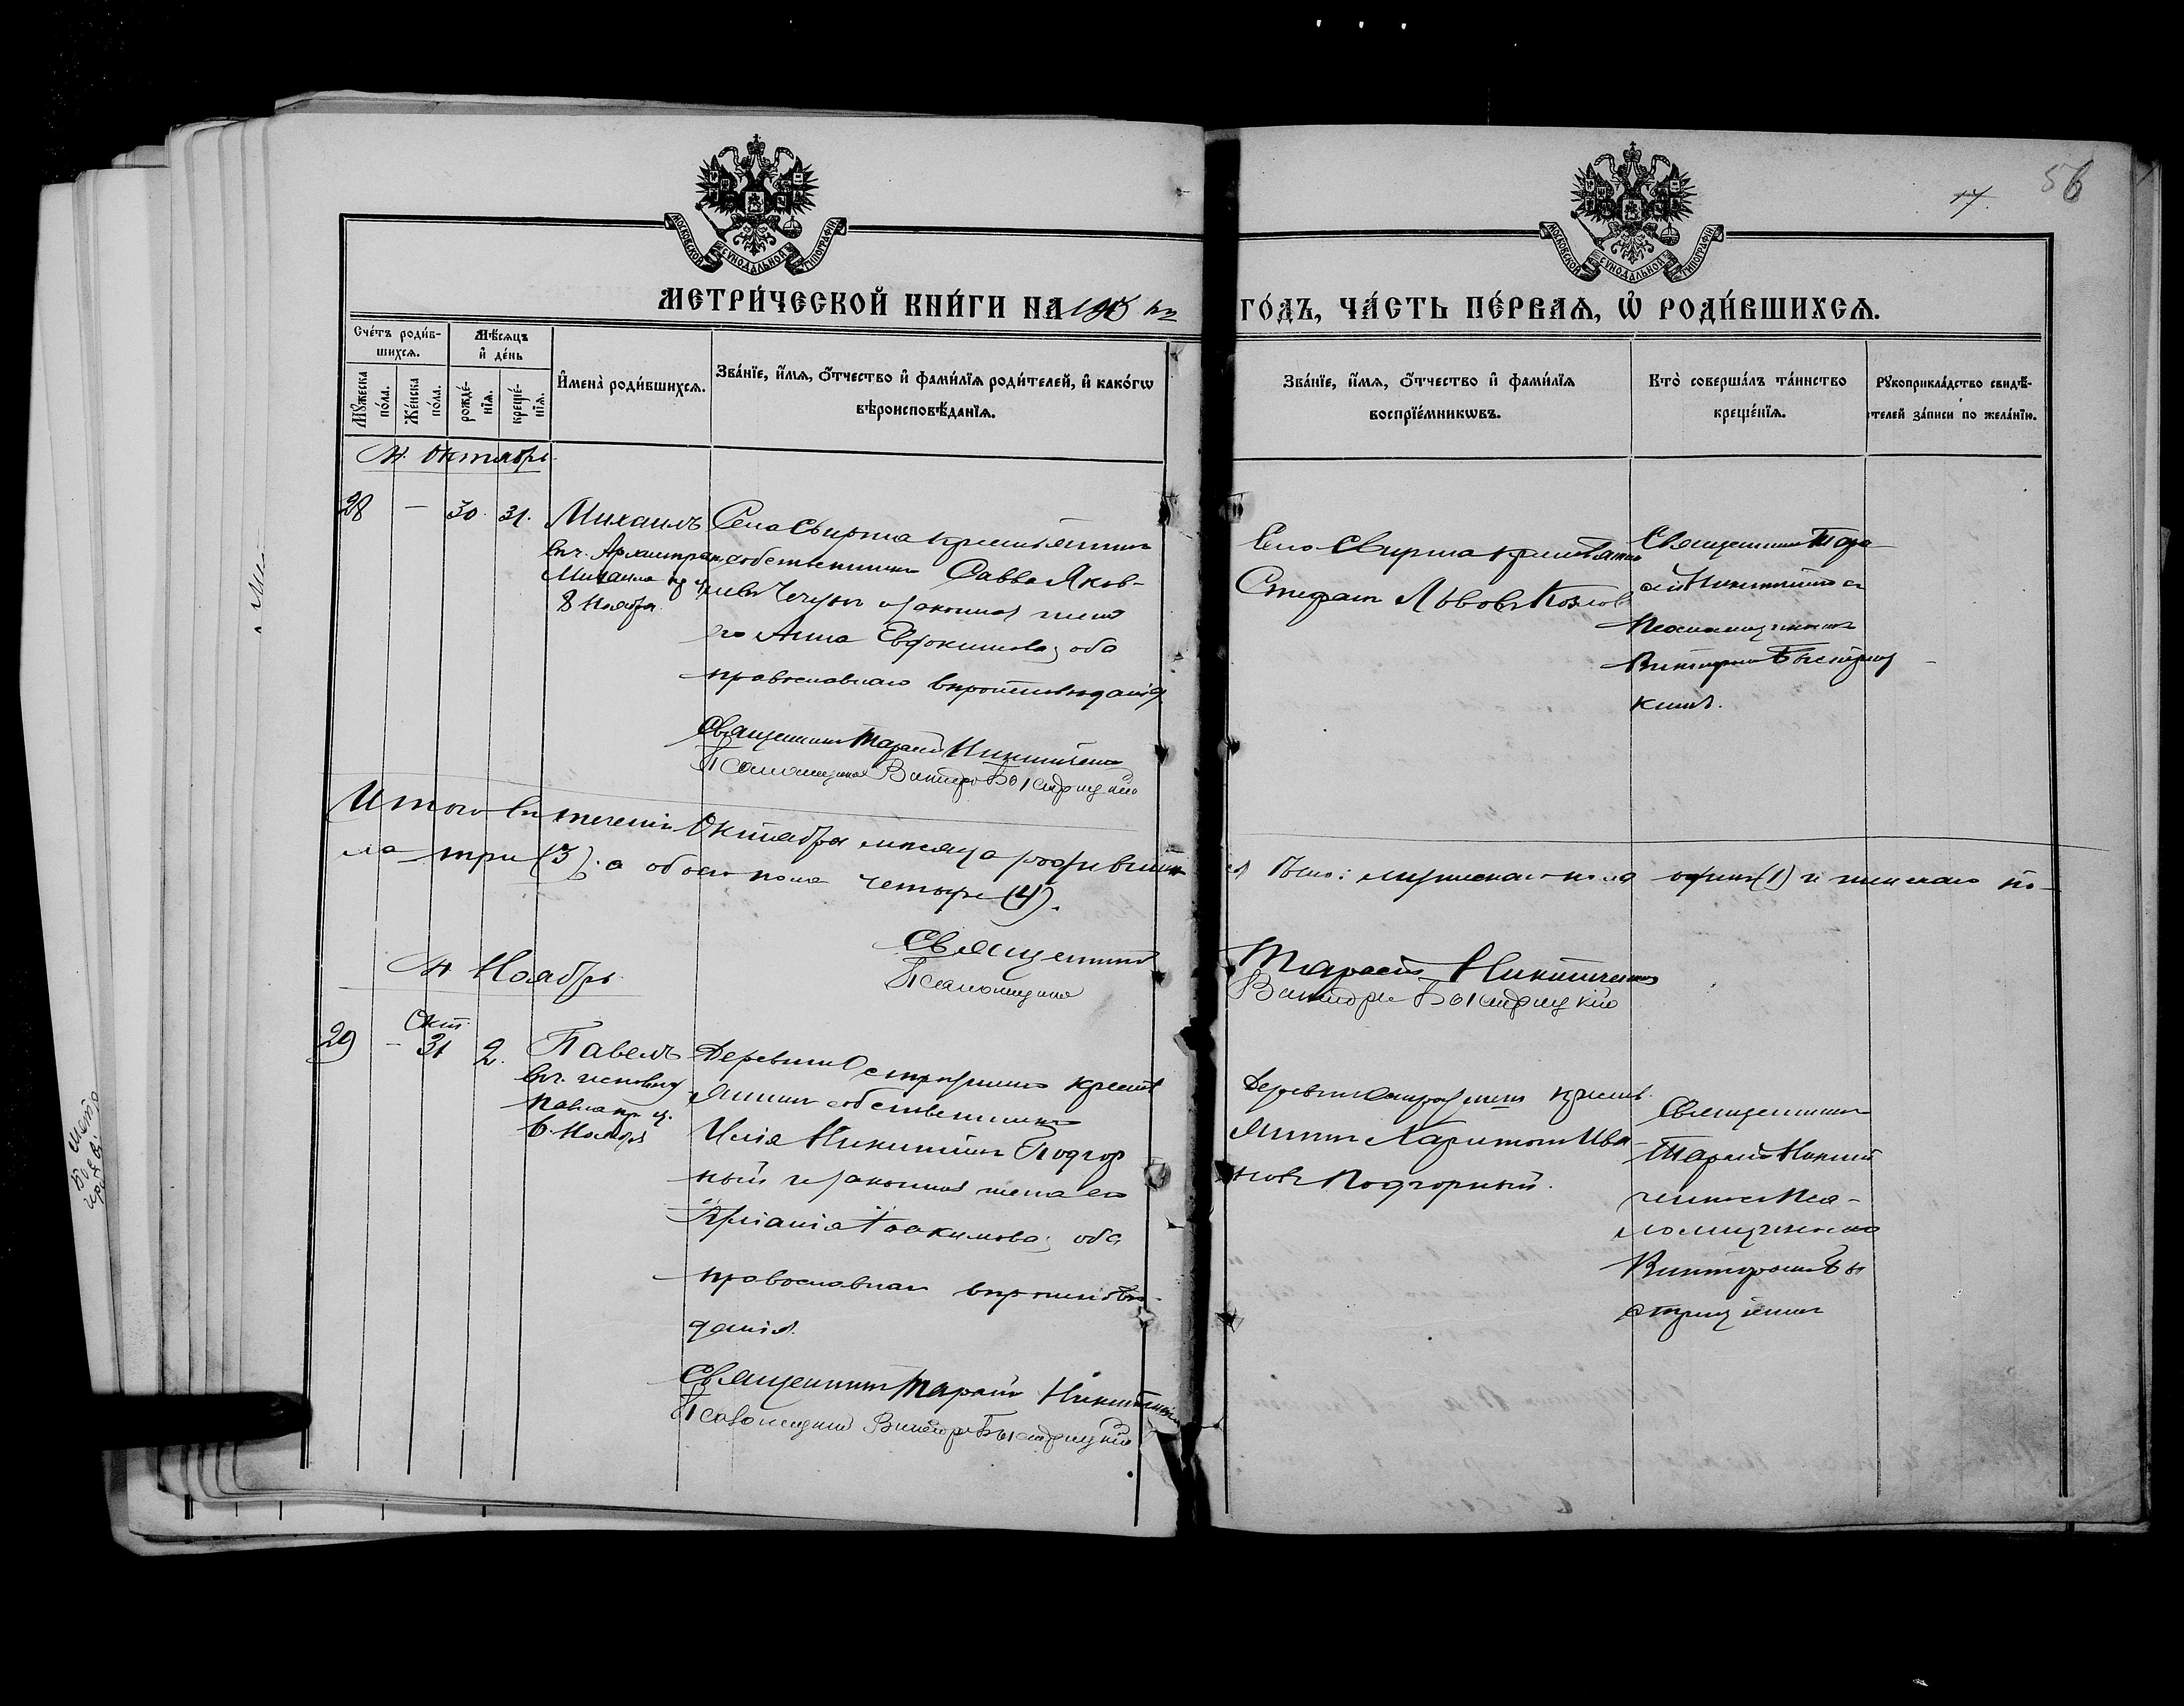 56
МОСКОВСКОЙ СѴНОДАЛЬНОЙ ТИПОГРАФІИ
МОСКОВСКОЙ СѴНОДАЛЬНОЙ ТИПОГРАФІИ
МЕТРИ́ЧЕСКОЙ КНИ́ГИ НА
ГО́ДЪ, ЧА́СТЬ ПЕ́РВАѦ, Ѽ РОДИ́ВШИХСѦ.
Сче́тъ роди́в-
шихсѧ.
Мѣ́сѧцъ
и҆ де́нь
Мꙋ́жеска по́ла.
Же́нска по́ла.
рожде́-
нїѧ.
креще́-
нїѧ.
И҆мена̀ роди́вшихсѧ.
Зва́нїе, и҆́мѧ, ѻ҆́тчество и҆ фами́лїѧ роди́телей, и҆ како́гѡ
вѣроисповѣ́данїѧ.
Зва́нїе, и҆́мѧ, ѻ҆́тчество и҆ фами́лїѧ
воспрїе́мникѡвъ.
Кто̀ соверша́лъ та́инство
креще́нїѧ.
Рꙋкоприкла́дство свидѣ́-
телей за́писи по жела́нїю.
М. Октябрь.
28 — 30. 31. Михаилъ
въ ч. Архистрат.
Михаила пр. ц.
8 Ноября
Села Свирта крестьянинъ
собственникъ Савва Яков-
левъ и законная жена
его Анна Евфокимова; оба
православнаго вероисповеданія
Священникъ Тарасій Никитченко
Псаломщикъ Викторъ Быстрицкій
Село Свирта крестьянинъ
Стефанъ Львовъ Козловъ
Священникъ Тара-
сій Никитченко съ
Псаломщикомъ
Викторомъ Быстриц
кимъ.
Итого въ теченіи Октября месяца родивших-
ся было: мужескаго пола одинъ (1) и женскаго по-
ла три (3), а обоего пола четыре (4).
Священникъ Тарасій Никитченко
Псаломщикъ Викторъ Быстрицкій
М. Ноябрь.
Окт.
29 — 31 2. Павелъ
въ ч. исповед.
Павла пр. ц.
6. Ноября
Деревни крестья
янинъ собственникъ
Илія Никитинъ Подгор
ный и законная жена его
Іоакимова; оба
православнаго вероиспове-
данія.
Священникъ Тарасій Никитченко
Псаломщикъ Викторъ Быстрицкій
Деревни кресть-
янинъ Харитонъ Ива-
новъ Подгорный.
Священникъ
Тарасій Никит
ченко съ Пса-
ломщикомъ
Викторомъ Бы
стрицкимъ